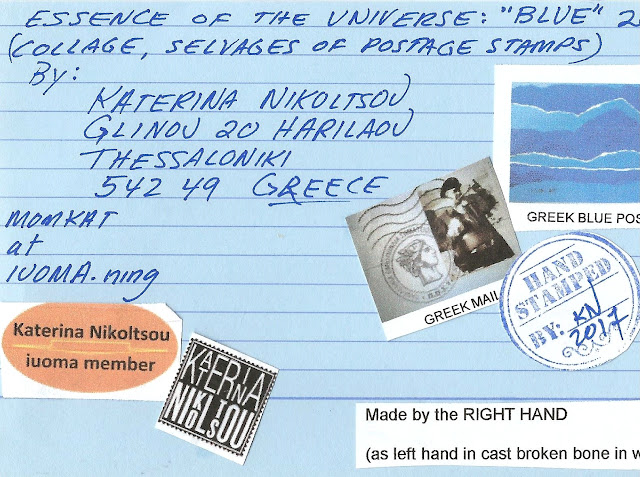 ESSENCE OF THE UNIVERSE: "BLUE" 2
(COLLAGE, SELVAGES OF POSTAGE STAMPS)
BY:
KATERINA NIKOLTSOU
GLINOU 20 HARILAOU
THESSALONIKI
542 49 GREECE
MOMKAT
at
IUOMA.ning
GREEK BLUE POS
GREEK MAIL
HAND
STAMPED
BY: KN
2017
Katerina Nikoltsou
iuoma member
KATERINA
NIKOLTSOU
Made by the RIGHT HAND
(as left hand in cast broken bone in w